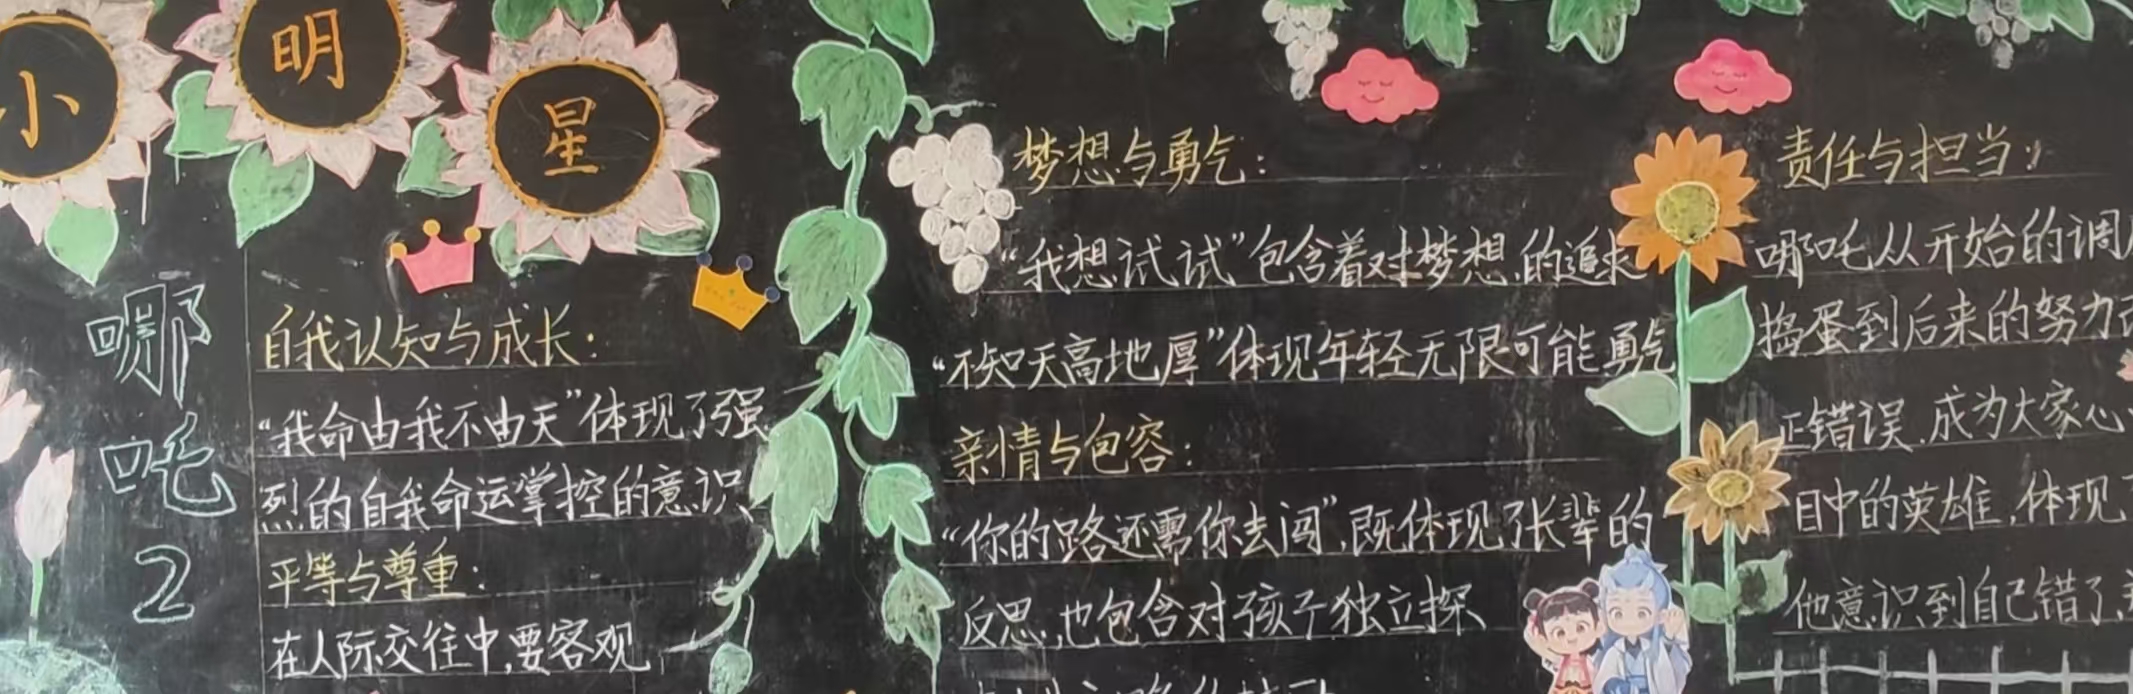 小明星
哪吒2
自我认知与成长:
“我命由我不由天”体现了强
烈的自我命运掌控的意识
平等与尊重:
在人际交往中,要客观
梦想与勇气:
“我想试试”包含着对梦想,的追求
“不知天高地厚”体现年轻无限可能勇气
亲情与包容:
“你的路还需你去闯”,既体现了长辈的
反思,也包含对孩子独立探
责任与担当:
哪吒从开始的调
捣蛋到后来的努力
正错误,成为大家心
目中的英雄,体现了
他意识到自己错了,